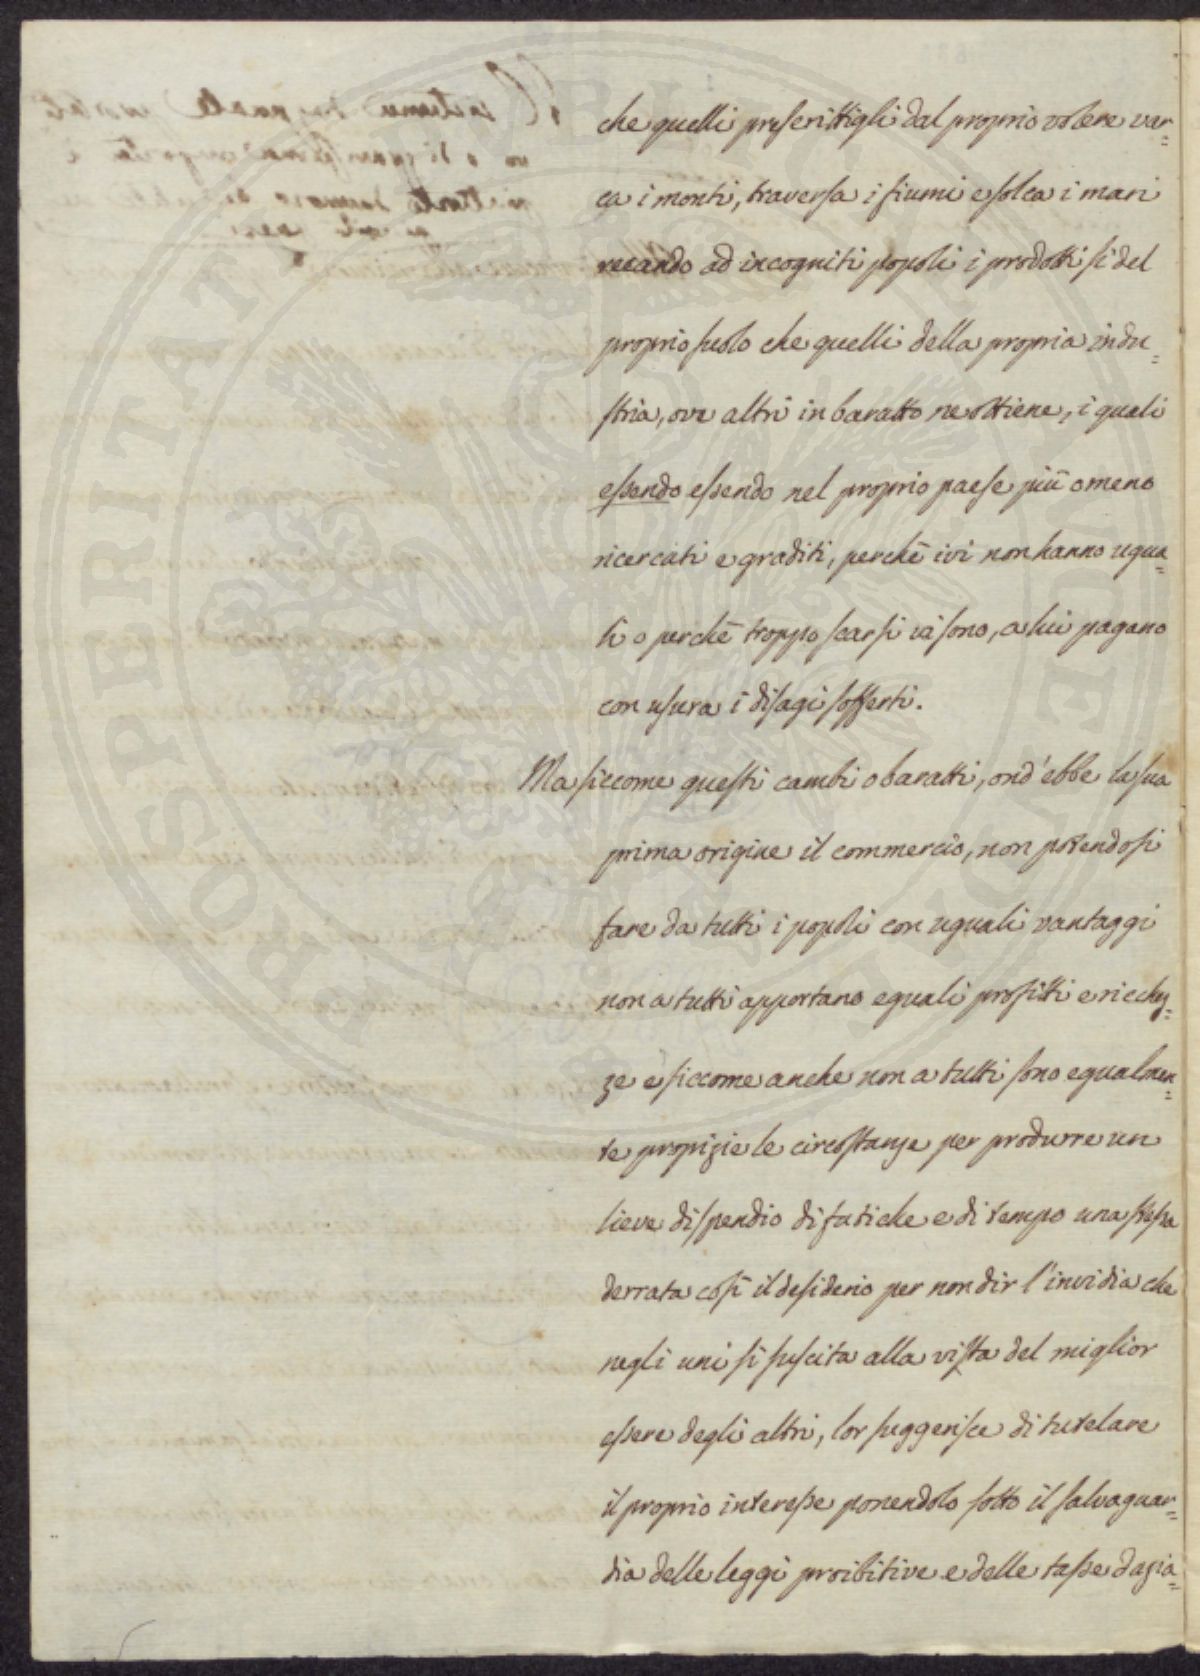 che quelli prescrittigli dal proprio volere var=
ca i monti, traversa i fiumi e solca i mari
recando ad incogniti popoli i prodotti sì del
proprio suolo che quelli della propria indu=
stria, ove altri in baratto ne ottiene, i quali
essendo essendo nel proprio paese più o meno
ricercati e graditi, perchè ivi non hanno ugua=
li o perchè troppo scarsi vi sono, a lui pagano
con usura i disagi sofferti.
Ma siccome questi cambi o baratti, ond'ebbe la sua
prima origine il commercio, non potendosi
fare da tutti i popoli con uguali vantaggi
non a tutti apportano eguali profitti e ricchez=
ze e siccome anche non a tutti sono egualmen=
te propizie le circostanze per produrre un
lieve dispendio di fatiche e di tempo una stessa
derrata così il desiderio per non dir l'invidia che
negli uni si suscita alla vista del miglior
essere degli altri, lor suggerisce di tutelare
il proprio interesse ponendolo sotto il salvaguar=
dia delle leggi proibitive e delle tasse dazia=
PROSPERITATI PUBLICAE